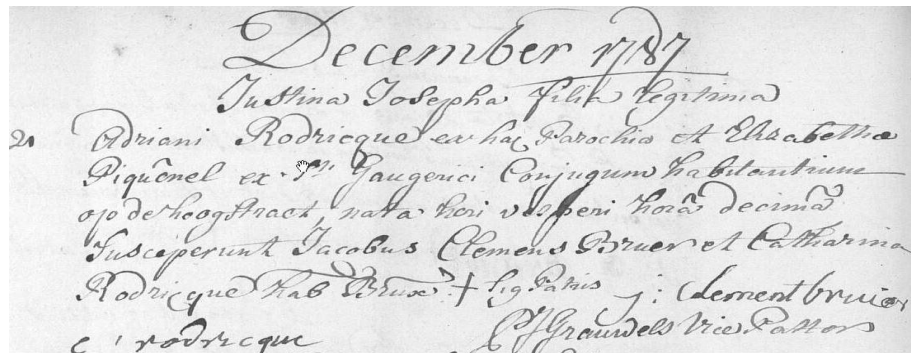 December 1787
Justina Josepha filia legitima
21 Adriani Rodricque ex hac Parochia et Elizabethæ
Piquenel ex Sti Gaugerici Conjugum habitantium
op de hoogstraet, nata heri vesperi horâ decimâ
Susceperunt Jacobus Clemens Bruer et Catharina
Rodricque hab Brux + sig Patris j: Clement bruier
c rodricque Grauwels Vice Pastor